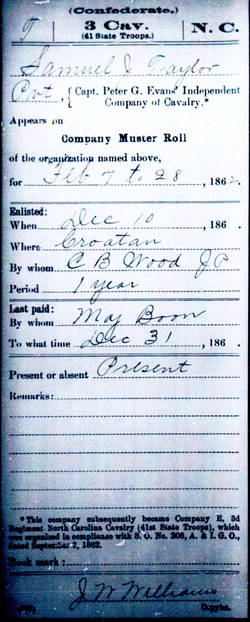 (Confederate.)
T
3 Cav.
(41 State Troops.)
N. C.
Samuel J Taylor
Pvt, { Capt. Peter G. Evans' Independent
Company of Cavalry.*
Appears on
Company Muster Roll
of the organization named above,
for Feb 7 to 28, 1862.
Enlisted:
When Dec 10, 186 .
Where Croatan
By whom C B Wood JP
Period 1 year
Last paid:
By whom Maj Boon
To what time Dec 31, 186 .
Present or absent Present
Remarks:
*This company subsequently became Company E, 3d
Regiment North Carolina Cavalry (41st State Troops), which
was organized in compliance with S. O. No. 206, A. & I. G. O.,
dated September 2, 1862.
Book mark:
J W Williams
Copyist.